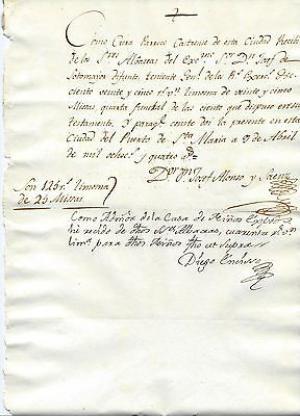 Como Cura Parroco Castrense de esta Ciudad Recibi
de los Sres Albaceas del Exmo Sor Dn Josef de
Sotomayor difunto, teniente Genl de los Rs Exercs
ciento veinte, y cinco rs vn limosna de veinte y cinco
Misas quarta funeral de las ciento que dispuso en su
testamento. Y para que conste doi la presente en esta
Ciudad del Puerto de Sta Maria a 9 de Abril
de mil ochocs y quatro
Josef Alonso y
Son 125 rs limosna
de 25 Misas
Como Admor de la Casa de Niños Expositos
he recibido de dhos Sres Albaceas, cuarenta rs vn
limosna para dhos Niños fho ut supra
Diego